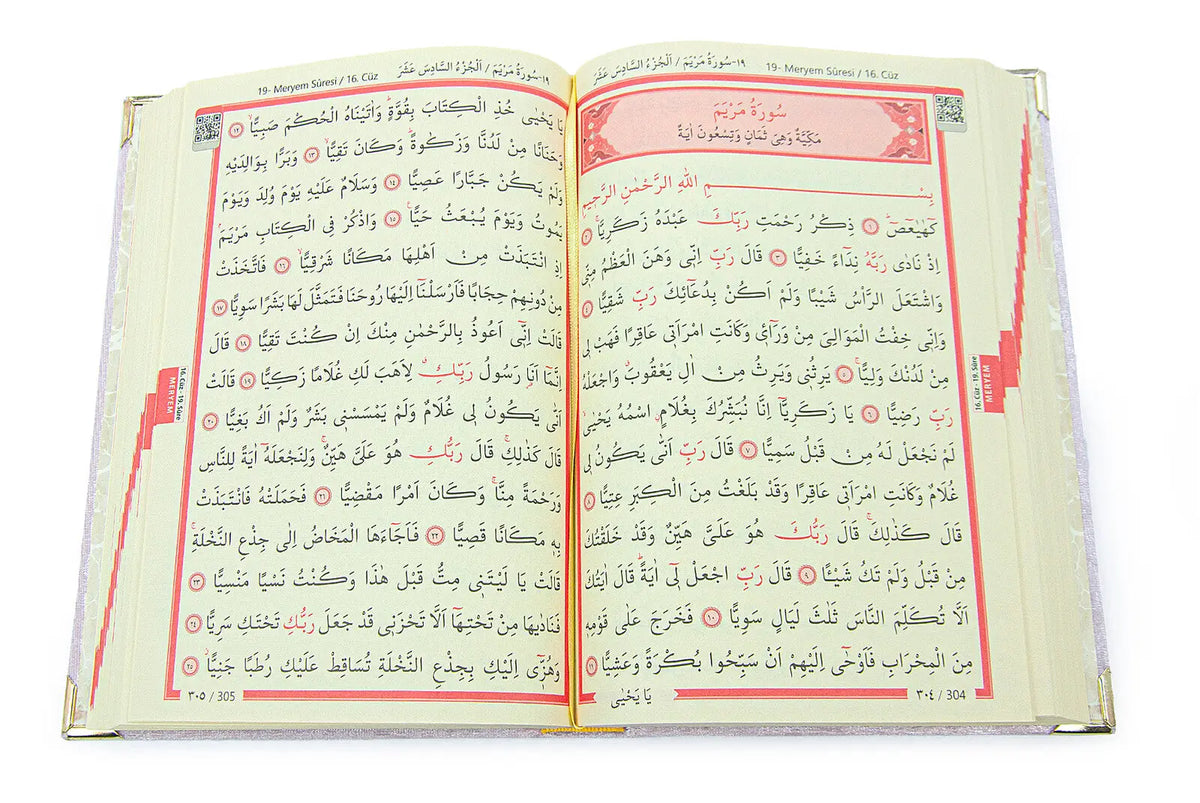 ١٩-سُورَةُ مَرْيَمَ / اَلْجُزْءُ السَّادِسَ عَشَرَ
19- Meryem Sûresi / 16. Cüz
سُورَةُ مَرْيَمَ
مَكِّيَّةٌ وَهِىَ ثَمَانٍ وَتِسْعُونَ اٰيَةً
بِسْمِ اللّٰهِ الرَّحْمٰنِ الرَّحِيمِ
كٓهٰيٰعٓصٓ ۜ ﴿١﴾ ذِكْرُ رَحْمَتِ رَبِّكَ عَبْدَهُ زَكَرِيَّاۚ ﴿٢﴾
اِذْ نَادٰى رَبَّهُ نِدَٓاءً خَفِيًّا ﴿٣﴾ قَالَ رَبِّ اِنّ۪ى وَهَنَ الْعَظْمُ مِنّ۪ى
وَاشْتَعَلَ الرَّاْسُ شَيْبًا وَلَمْ اَكُنْ بِدُعَٓائِكَ رَبِّ شَقِيًّا ﴿٤﴾
وَاِنّ۪ى خِفْتُ الْمَوَالِىَ مِنْ وَرَٓائ۪ى وَكَانَتِ امْرَاَت۪ى عَاقِرًا فَهَبْ ل۪ى
مِنْ لَدُنْكَ وَلِيًّاۙ ﴿٥﴾ يَرِثُن۪ى وَيَرِثُ مِنْ اٰلِ يَعْقُوبَ وَاجْعَلْهُ
رَبِّ رَضِيًّا ﴿٦﴾ يَا زَكَرِيَّٓا اِنَّا نُبَشِّرُكَ بِغُلَامٍۨ اسْمُهُ يَحْيٰىۙ
لَمْ نَجْعَلْ لَهُ مِنْ قَبْلُ سَمِيًّا ﴿٧﴾ قَالَ رَبِّ اَنّٰى يَكُونُ ل۪ى
غُلَامٌ وَكَانَتِ امْرَاَت۪ى عَاقِرًا وَقَدْ بَلَغْتُ مِنَ الْكِبَرِ عِتِيًّا ﴿٨﴾
قَالَ كَذٰلِكَۚ قَالَ رَبُّكَ هُوَ عَلَىَّ هَيِّنٌ وَقَدْ خَلَقْتُكَ
مِنْ قَبْلُ وَلَمْ تَكُ شَيْـًٔا ﴿٩﴾ قَالَ رَبِّ اجْعَلْ ل۪ٓى اٰيَةًۜ قَالَ اٰيَتُكَ
اَلَّا تُكَلِّمَ النَّاسَ ثَلٰثَ لَيَالٍ سَوِيًّا ﴿١٠﴾ فَخَرَجَ عَلٰى قَوْمِه۪
مِنَ الْمِحْرَابِ فَاَوْحٰٓى اِلَيْهِمْ اَنْ سَبِّحُوا بُكْرَةً وَعَشِيًّا ﴿١١﴾
يَا يَحْيٰى
٣٠٤ / 304
16. Cüz - 19. Sûre
MERYEM
١٩-سُورَةُ مَرْيَمَ / اَلْجُزْءُ السَّادِسَ عَشَرَ
19- Meryem Sûresi / 16. Cüz
يَا يَحْيٰى خُذِ الْكِتَابَ بِقُوَّةٍۜ وَاٰتَيْنَاهُ الْحُكْمَ صَبِيًّاۙ ﴿١٢﴾
وَحَنَانًا مِنْ لَدُنَّا وَزَكٰوةًۜ وَكَانَ تَقِيًّاۙ ﴿١٣﴾ وَبَرًّا بِوَالِدَيْهِ
وَلَمْ يَكُنْ جَبَّارًا عَصِيًّا ﴿١٤﴾ وَسَلَامٌ عَلَيْهِ يَوْمَ وُلِدَ وَيَوْمَ
يَمُوتُ وَيَوْمَ يُبْعَثُ حَيًّاۚ ﴿١٥﴾ وَاذْكُرْ فِى الْكِتَابِ مَرْيَمَۢ
اِذِ انْتَبَذَتْ مِنْ اَهْلِهَا مَكَانًا شَرْقِيًّاۙ ﴿١٦﴾ فَاتَّخَذَتْ
مِنْ دُونِهِمْ حِجَابًا فَاَرْسَلْنَٓا اِلَيْهَا رُوحَنَا فَتَمَثَّلَ لَهَا بَشَرًا سَوِيًّا ﴿١٧﴾
قَالَتْ اِنّ۪ٓى اَعُوذُ بِالرَّحْمٰنِ مِنْكَ اِنْ كُنْتَ تَقِيًّا ﴿١٨﴾ قَالَ
اِنَّمَٓا اَنَا۬ رَسُولُ رَبِّكِۗ لِاَهَبَ لَكِ غُلَامًا زَكِيًّا ﴿١٩﴾ قَالَتْ
اَنّٰى يَكُونُ ل۪ى غُلَامٌ وَلَمْ يَمْسَسْن۪ى بَشَرٌ وَلَمْ اَكُ بَغِيًّا ﴿٢٠﴾
قَالَ كَذٰلِكِۚ قَالَ رَبُّكِ هُوَ عَلَىَّ هَيِّنٌۚ وَلِنَجْعَلَهُٓ اٰيَةً لِلنَّاسِ
وَرَحْمَةً مِنَّاۚ وَكَانَ اَمْرًا مَقْضِيًّا ﴿٢١﴾ فَحَمَلَتْهُ فَانْتَبَذَتْ
بِه۪ مَكَانًا قَصِيًّا ﴿٢٢﴾ فَاَجَٓاءَهَا الْمَخَاضُ اِلٰى جِذْعِ النَّخْلَةِۚ
قَالَتْ يَا لَيْتَن۪ى مِتُّ قَبْلَ هٰذَا وَكُنْتُ نَسْيًا مَنْسِيًّا ﴿٢٣﴾
فَنَادٰيهَا مِنْ تَحْتِهَٓا اَلَّا تَحْزَن۪ى قَدْ جَعَلَ رَبُّكِ تَحْتَكِ سَرِيًّا ﴿٢٤﴾
وَهُزّ۪ٓى اِلَيْكِ بِجِذْعِ النَّخْلَةِ تُسَاقِطْ عَلَيْكِ رُطَبًا جَنِيًّاۘ ﴿٢٥﴾
٣٠٥ / 305
16. Cüz - 19. Sûre
MERYEM